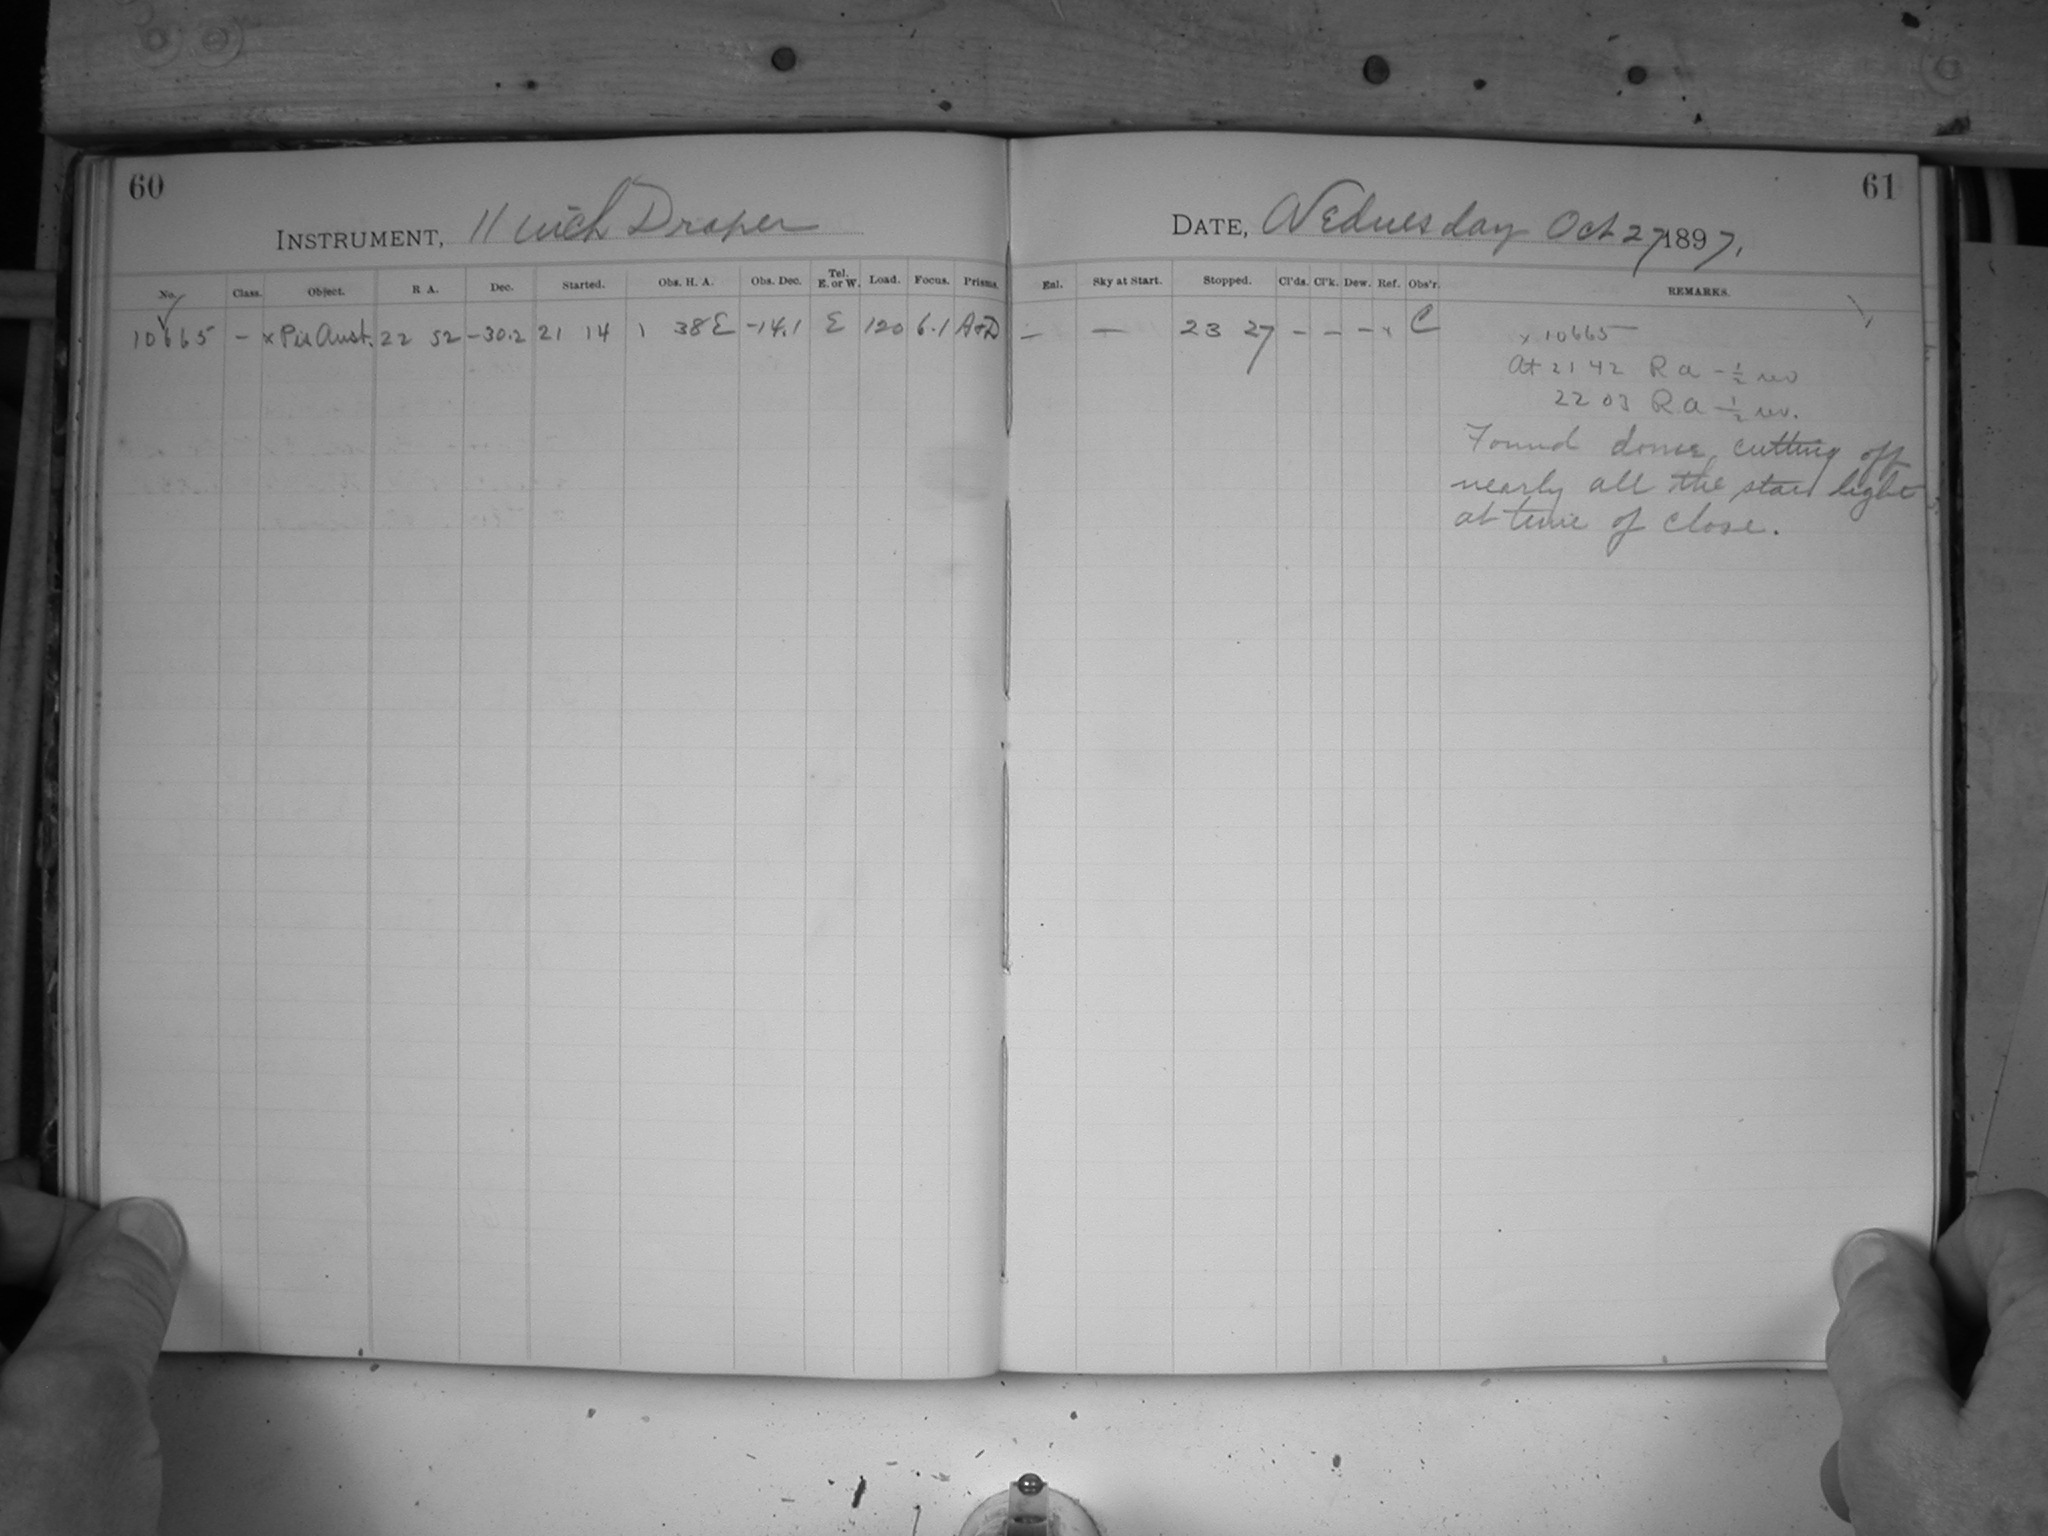 60
INSTRUMENT, 11 inch Draper
No. Class. Object. R A. Dec. Started. Obs. H. A. Obs. Dec. Tel. E. or W. Load. Focus. Prisms.
10665 – x Pis Aust. 22 52 –30.2 21 14 1 38 E –14.1 E 120 6.1 A+D
61
DATE, Wednesday Oct 27 1897.
Eal. Sky at Start. Stopped. Cl'ds. Cl'k. Dew. Ref. Obs'r. REMARKS.
– — 23 27 – – – x C
x 10665
At 21 42 R a – ½ rev
22 03 R a – ½ rev.
Found dome cutting off
nearly all the stars light
at time of close.